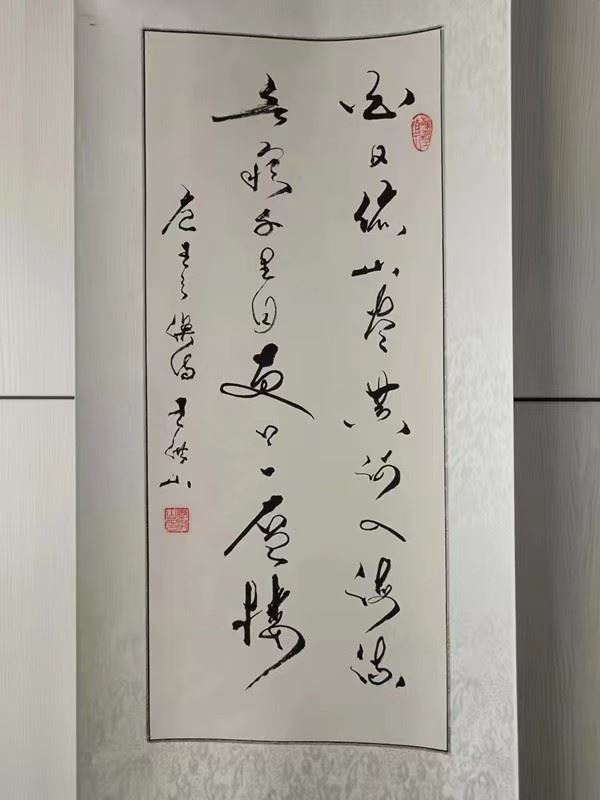 白日依山尽黄河入海流
欲穷千里目更上一层楼
唐王之涣诗 王洪山